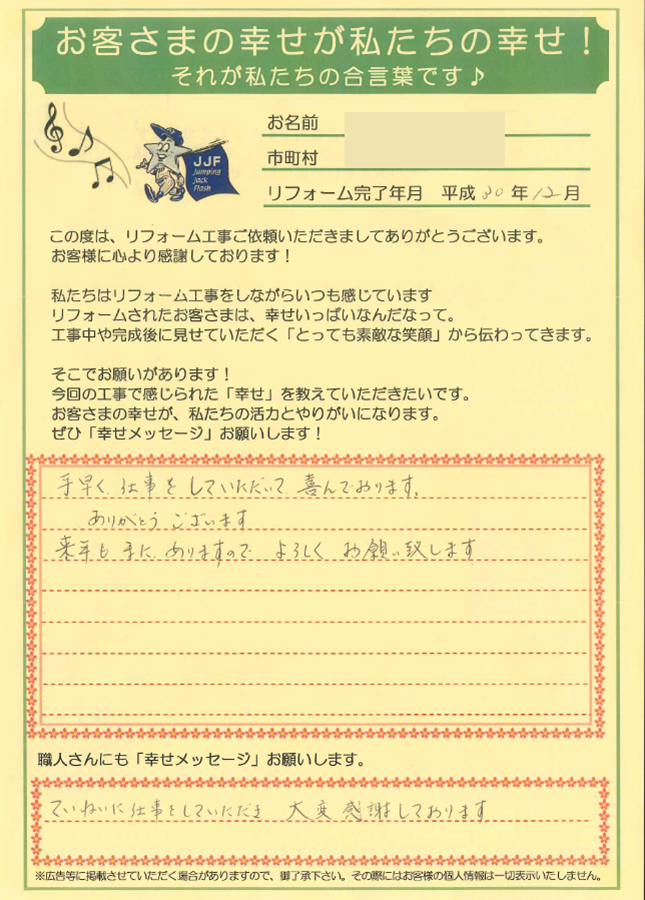 お客さまの幸せが私たちの幸せ！
それが私たちの合言葉です♪
お名前
市町村
リフォーム完了年月 平成 30 年 12 月
JJF
Jumping
Jack
Flash
この度は、リフォーム工事ご依頼いただきましてありがとうございます。
お客様に心より感謝しております！
私たちはリフォーム工事をしながらいつも感じています
リフォームされたお客さまは、幸せいっぱいなんだなって。
工事中や完成後に見せていただく「とっても素敵な笑顔」から伝わってきます。
そこでお願いがあります！
今回の工事で感じられた「幸せ」を教えていただきたいです。
お客さまの幸せが、私たちの活力とやりがいになります。
ぜひ「幸せメッセージ」お願いします！
手早く 仕事を していただいて 喜んでおります。
ありがとう ございます
来年も ありますので よろしく お願い致します
職人さんにも「幸せメッセージ」お願いします。
ていねいに仕事をしていただき 大変 感謝しております
※広告等に掲載させていただく場合がありますので、御了承下さい。その際にはお客様の個人情報は一切表示いたしません。